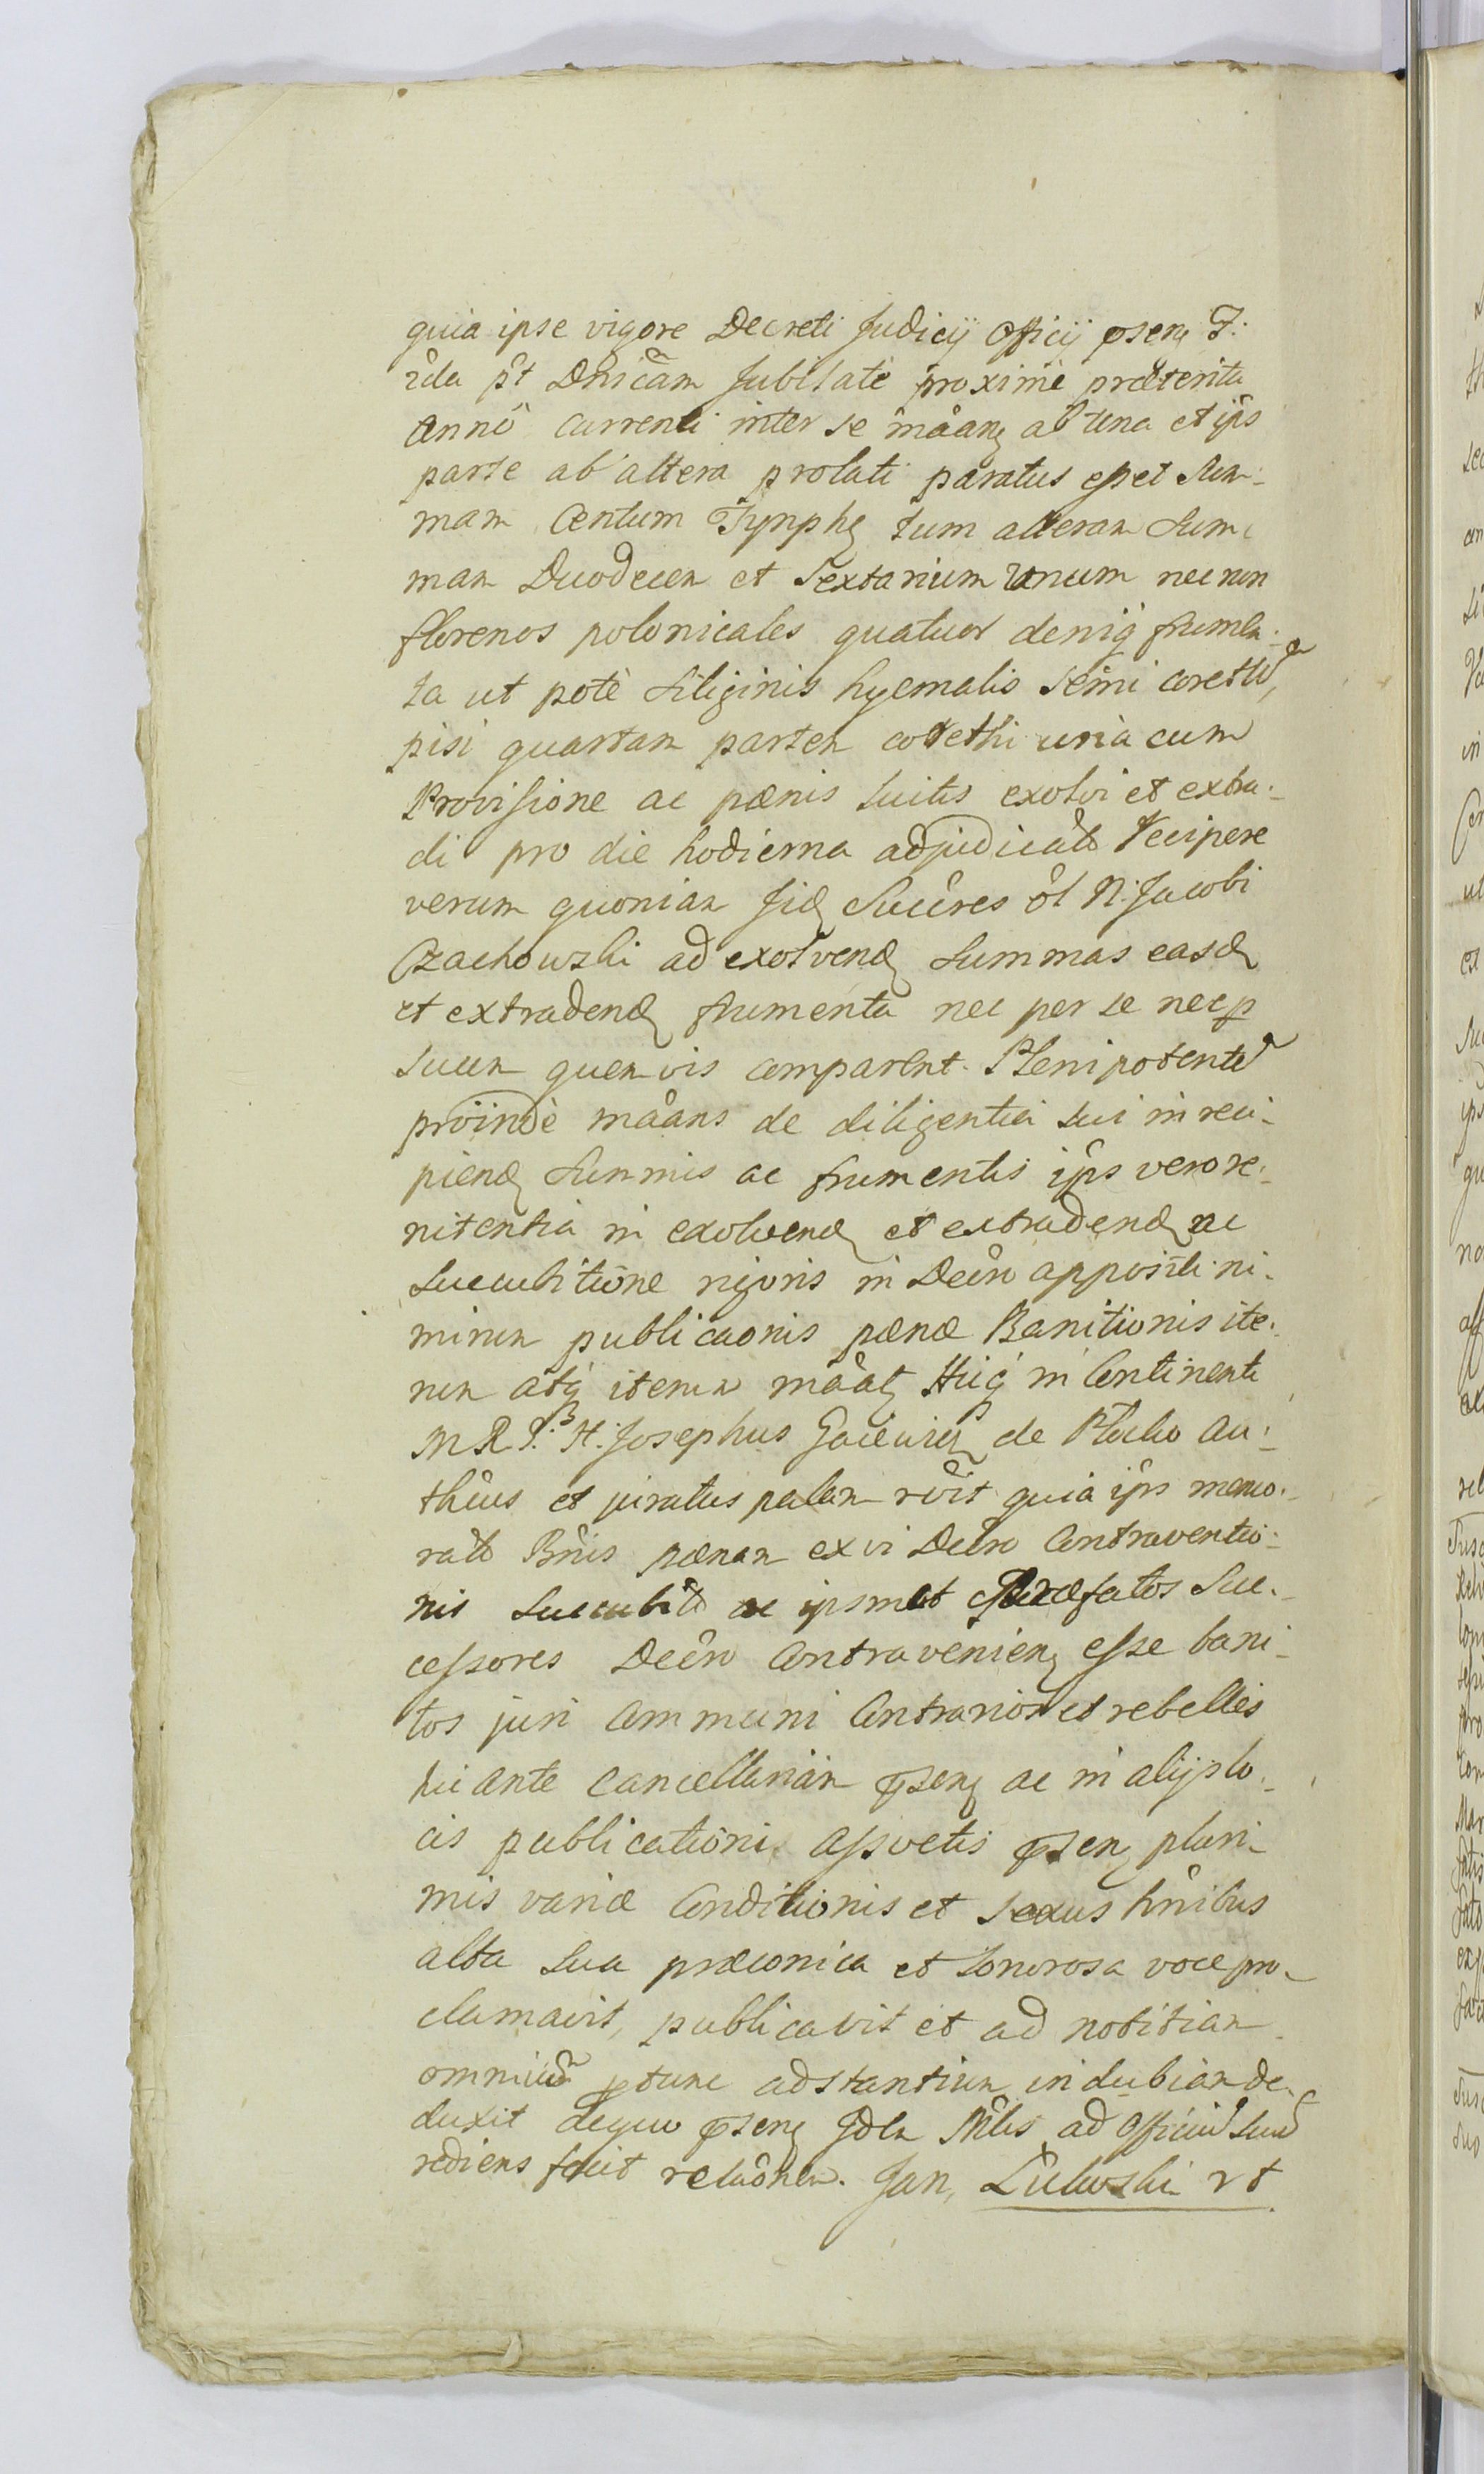 quia ipse vigore Decreti Judicij Officij psen F:
rda pt Dnicam Jubilate proxime præterita
Anno currenti inter se måan ab una et ips
parte ab altera prolati paratus esset Sum-
mam Centum Tynph tum alteram Sum-
mam Duodecem et Sextarium unum nec non
florenos polonicales quatuor deniq frumen-
ta ut pote Siliginis hyemalis Semi coretti,
pisi quartam partem corethi una cum
Provisione ac pænis luitis exolvi et extra-
di pro die hodierna adjudicato Recipere
verum quoniam Jid Succres ol N: Jacobi
Czachowski ad exolvend Summas easd
et extradend frumenta nec per se nec p
Suum quenvis comparent Plenipotente
proinde måans de diligentia sui in reci-
piend Summis ac frumentis ips vero re-
nitentia in exolvend et extradend ac
Succubitione rigoris in Decro appositi ni-
mirum publicaonis pænæ Banitionis ite-
rum atq iterum måat Huiq in Continenti
M R T. H. Josephus de Plocko au-
theus et juratus palam rvit quia ips memo-
rato Bnis pænam ex vi Decro Contraventio-
nis Succubito ac ipsmet Præfatos Suc-
cessores Decro Contravenien esse bani-
tos juri Communi Contrarios et rebelles
hic ante Cancellariam psen ac in alijs lo-
cis publicationi assvetis psen pluri-
mis variæ Conditionis et sexus hnibus
alta sua præconica et Sonorosa voce pro-
clamavit, publicavit et ad notitiam
omnium ptunc adstantium indubiam de-
duxit dequo psen Jdem Mlis ad Officium suum
rediens fecit relaonem. Jan, Lulewski rt